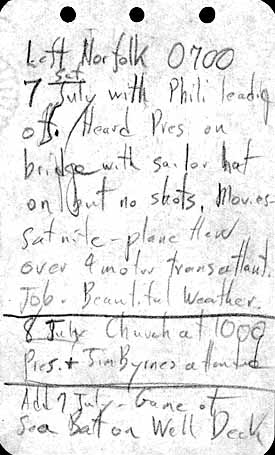 Left Norfolk 0700
Sat
7 July with Phili leading
off. Heard Pres on
bridge with sailor hat
on but no shots. Movies-
Sat nite - plane flew
over 4 motor transatlant.
Job. Beautiful Weather.
8 July Church at 1000
Pres. + Jim Byrnes attended
Add 7 July - Game of
Sea Bat on Well Deck